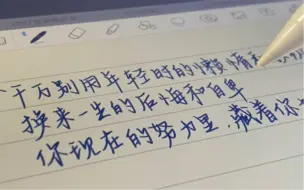 千万别用年轻时的懒惰
换来一生的后悔和自卑
你现在的努力里，藏着你